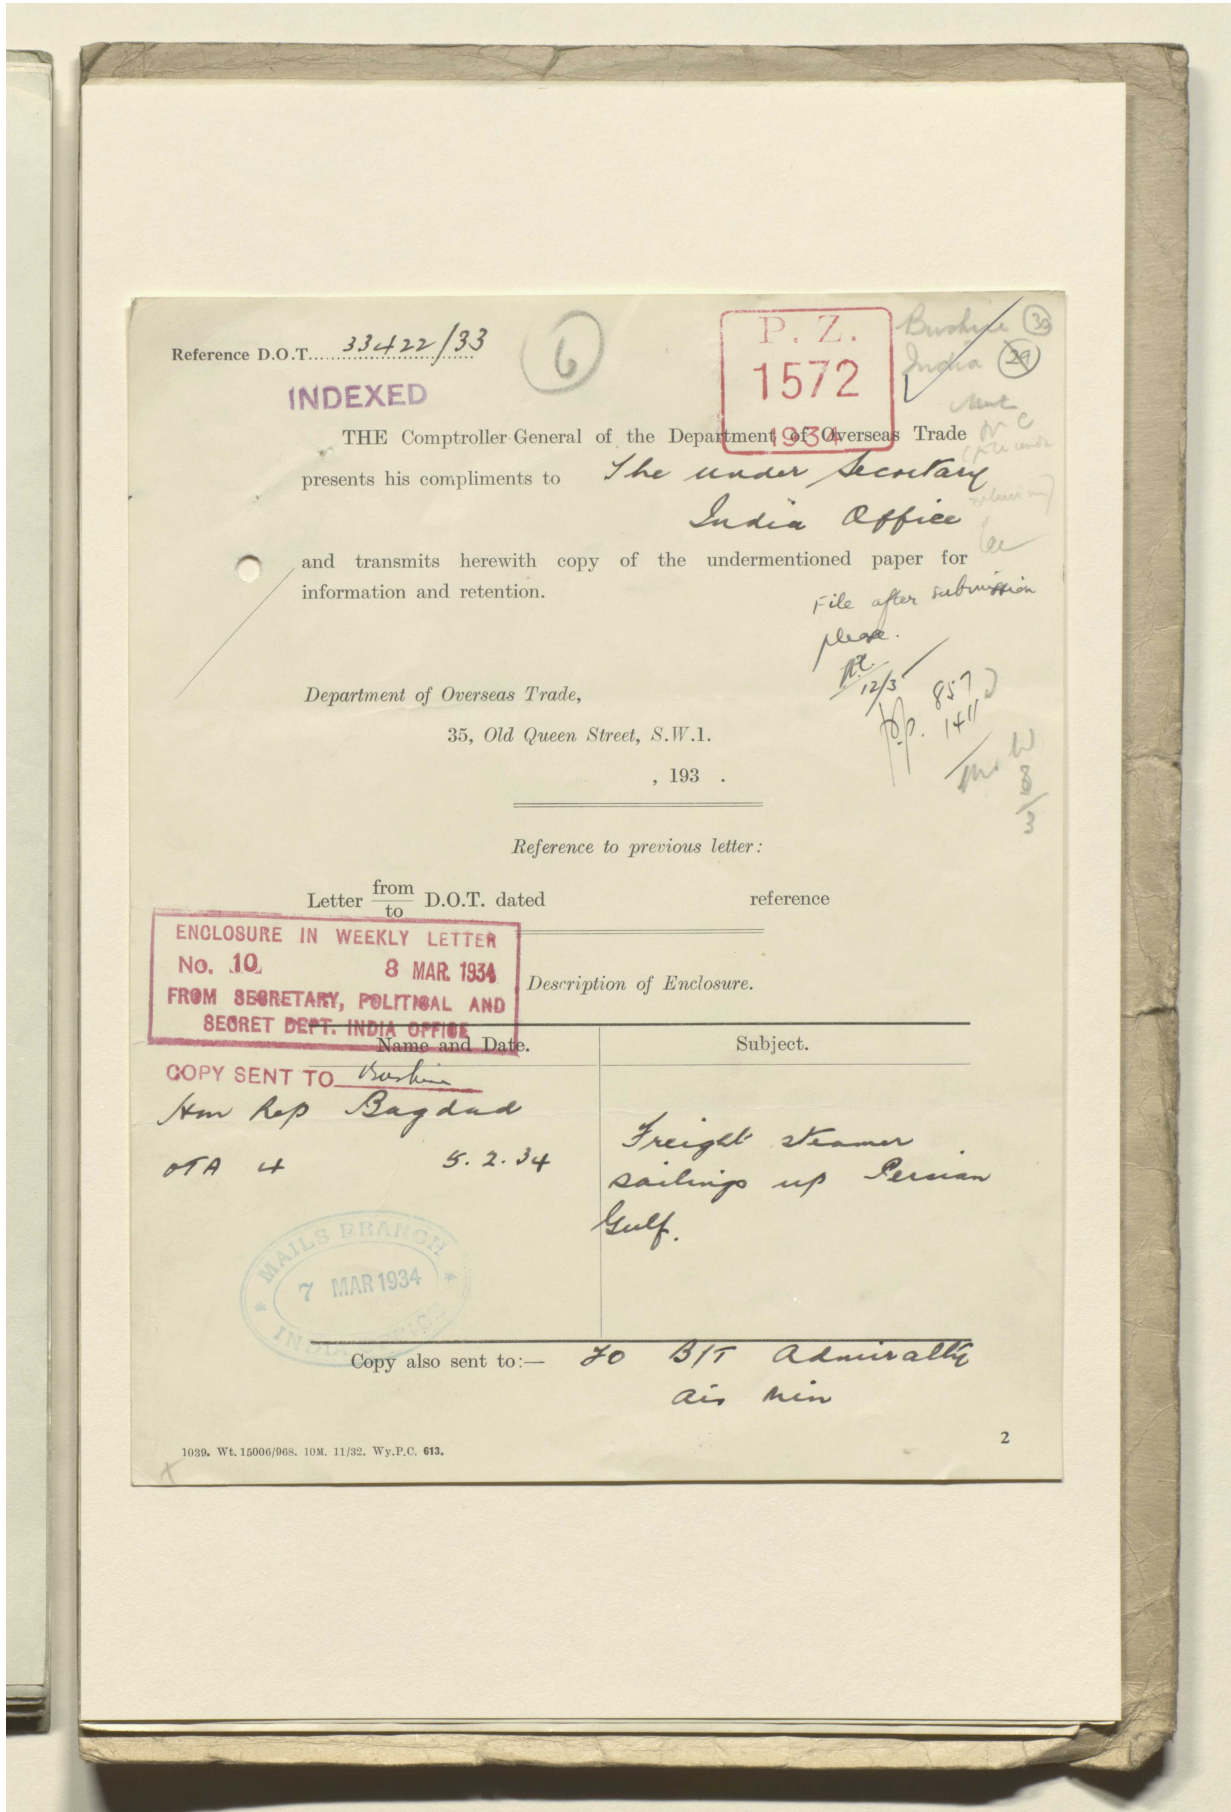 Reference D.O.T. 33422/33
6
P. Z.
1572
1934
Bushire 30
India 29
INDEXED
THE Comptroller-General of the Department of Overseas Trade
presents his compliments to The under Secretary
India Office
and transmits herewith copy of the undermentioned paper for
information and retention.
File after submission
please.
12/3
p.p. 857
1411
8/3
Department of Overseas Trade,
35, Old Queen Street, S.W.1.
, 193 .
Reference to previous letter:
Letter from/to D.O.T. dated reference
ENCLOSURE IN WEEKLY LETTER
No. 10 8 MAR. 1934
FROM SECRETARY, POLITICAL AND
SECRET DEPT. INDIA OFFICE
Description of Enclosure.
Name and Date. Subject.
COPY SENT TO Bushire
Hm Rep Bagdad
OTA 4 5.2.34
Freight steamer
sailings up Persian
Gulf.
MAILS BRANCH
7 MAR 1934
INDIA OFFICE
Copy also sent to:— FO B/T Admiralty
Air Min
1039. Wt. 15006/968. 10M. 11/32. Wy.P.C. 613.
2